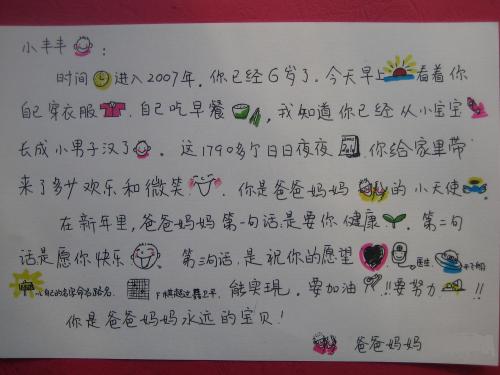 小丰丰：
时间进入2007年，你已经6岁了。今天早上看着你
自己穿衣服，自己吃早餐，我知道你已经从小宝宝
长成小男子汉了。这1790多个日日夜夜，你给家里带
来了多少欢乐和微笑。你是爸爸妈妈的小天使。
在新年里，爸爸妈妈第一句话是要你健康。第二句
话是愿你快乐。第三句话，是祝你的愿望医生
自己的名字命名路名。下棋超过聂卫平。能实现。要加油!!要努力!!
你是爸爸妈妈永远的宝贝!
爸爸妈妈